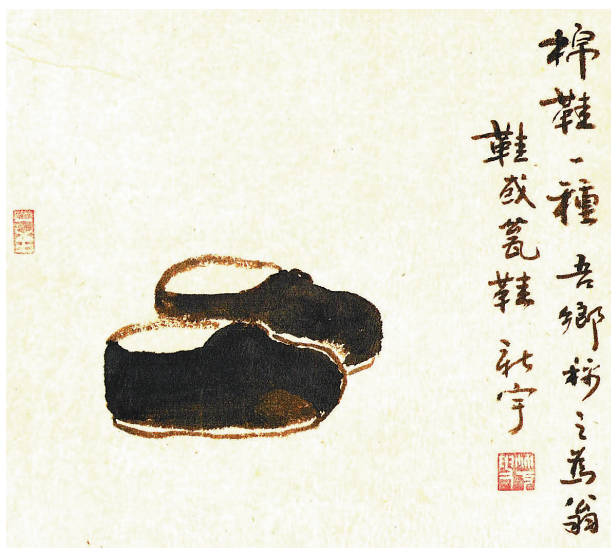 棉鞋一種吾鄉稱之為翁
鞋或甕鞋 社宇